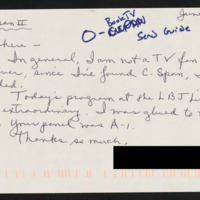 June
Book TV
O - 
Send Guide
here -
In general, I am not a TV fan
ver, since I've found C. Span, I
ded.
Today's program at the LBJ Li
traordinary. I was glad to
Your panel was A-1.
Thanks so much,